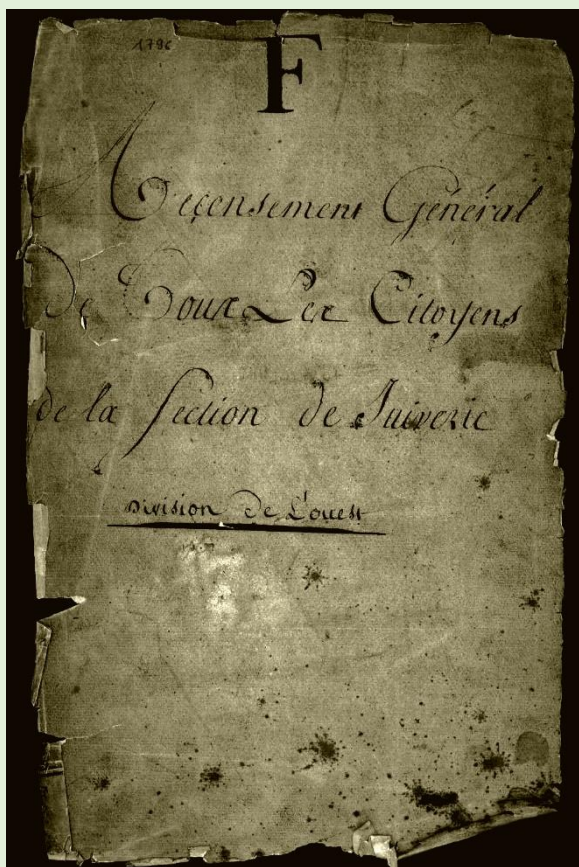 1796
F
Recensement Général
De Tous Les Citoyens
de la Section de Juiverie
Division De L'ouest